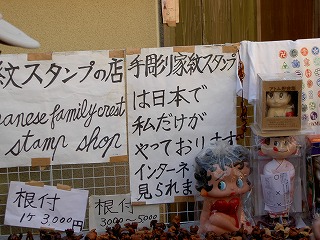 紋スタンプの店
anese family crest
stamp shop
手彫り家紋スタンプ
は日本で
私だけが
やっております
インターネ
見られま
根付
1ケ 3000円
根付
3000〜5000